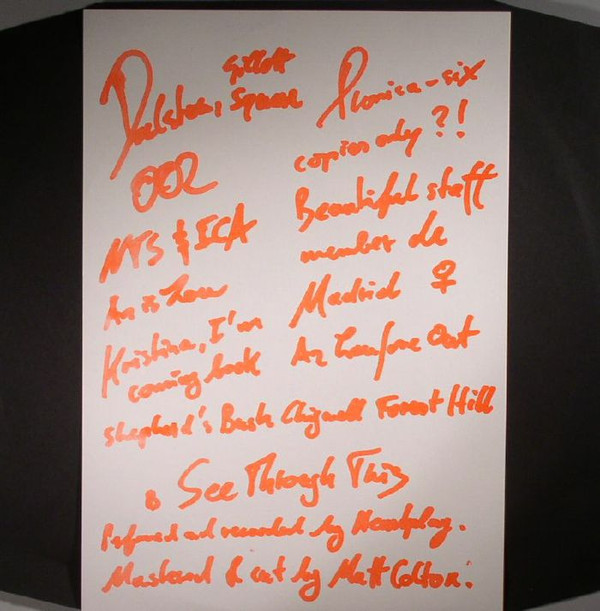 Gillett
Dalston, Square
002
NTS & ICA
An is
Kristina, I'm
coming back
Plonica - six
copies only ?!
Beautiful staff
member de
Madrid ♀
An Out
Shepherd's Bush Chigwell Forest Hill
B See Through This
Performed and recorded by
Mastered & cut by Matt Colton.